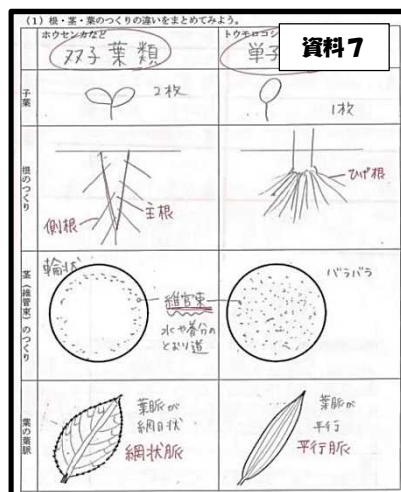 (1)根・茎・葉のつくりの違いをまとめてみよう。
ホウセンカなど
双子葉類
トウモロコシ
単子
資料7
子葉
2枚
1枚
根のつくり
側根
主根
ひげ根
茎(維管束)のつくり
輪状
維管束
水や養分の
とおり道
バラバラ
葉の葉脈
葉脈が
網目状
網状脈
葉脈が
平行
平行脈